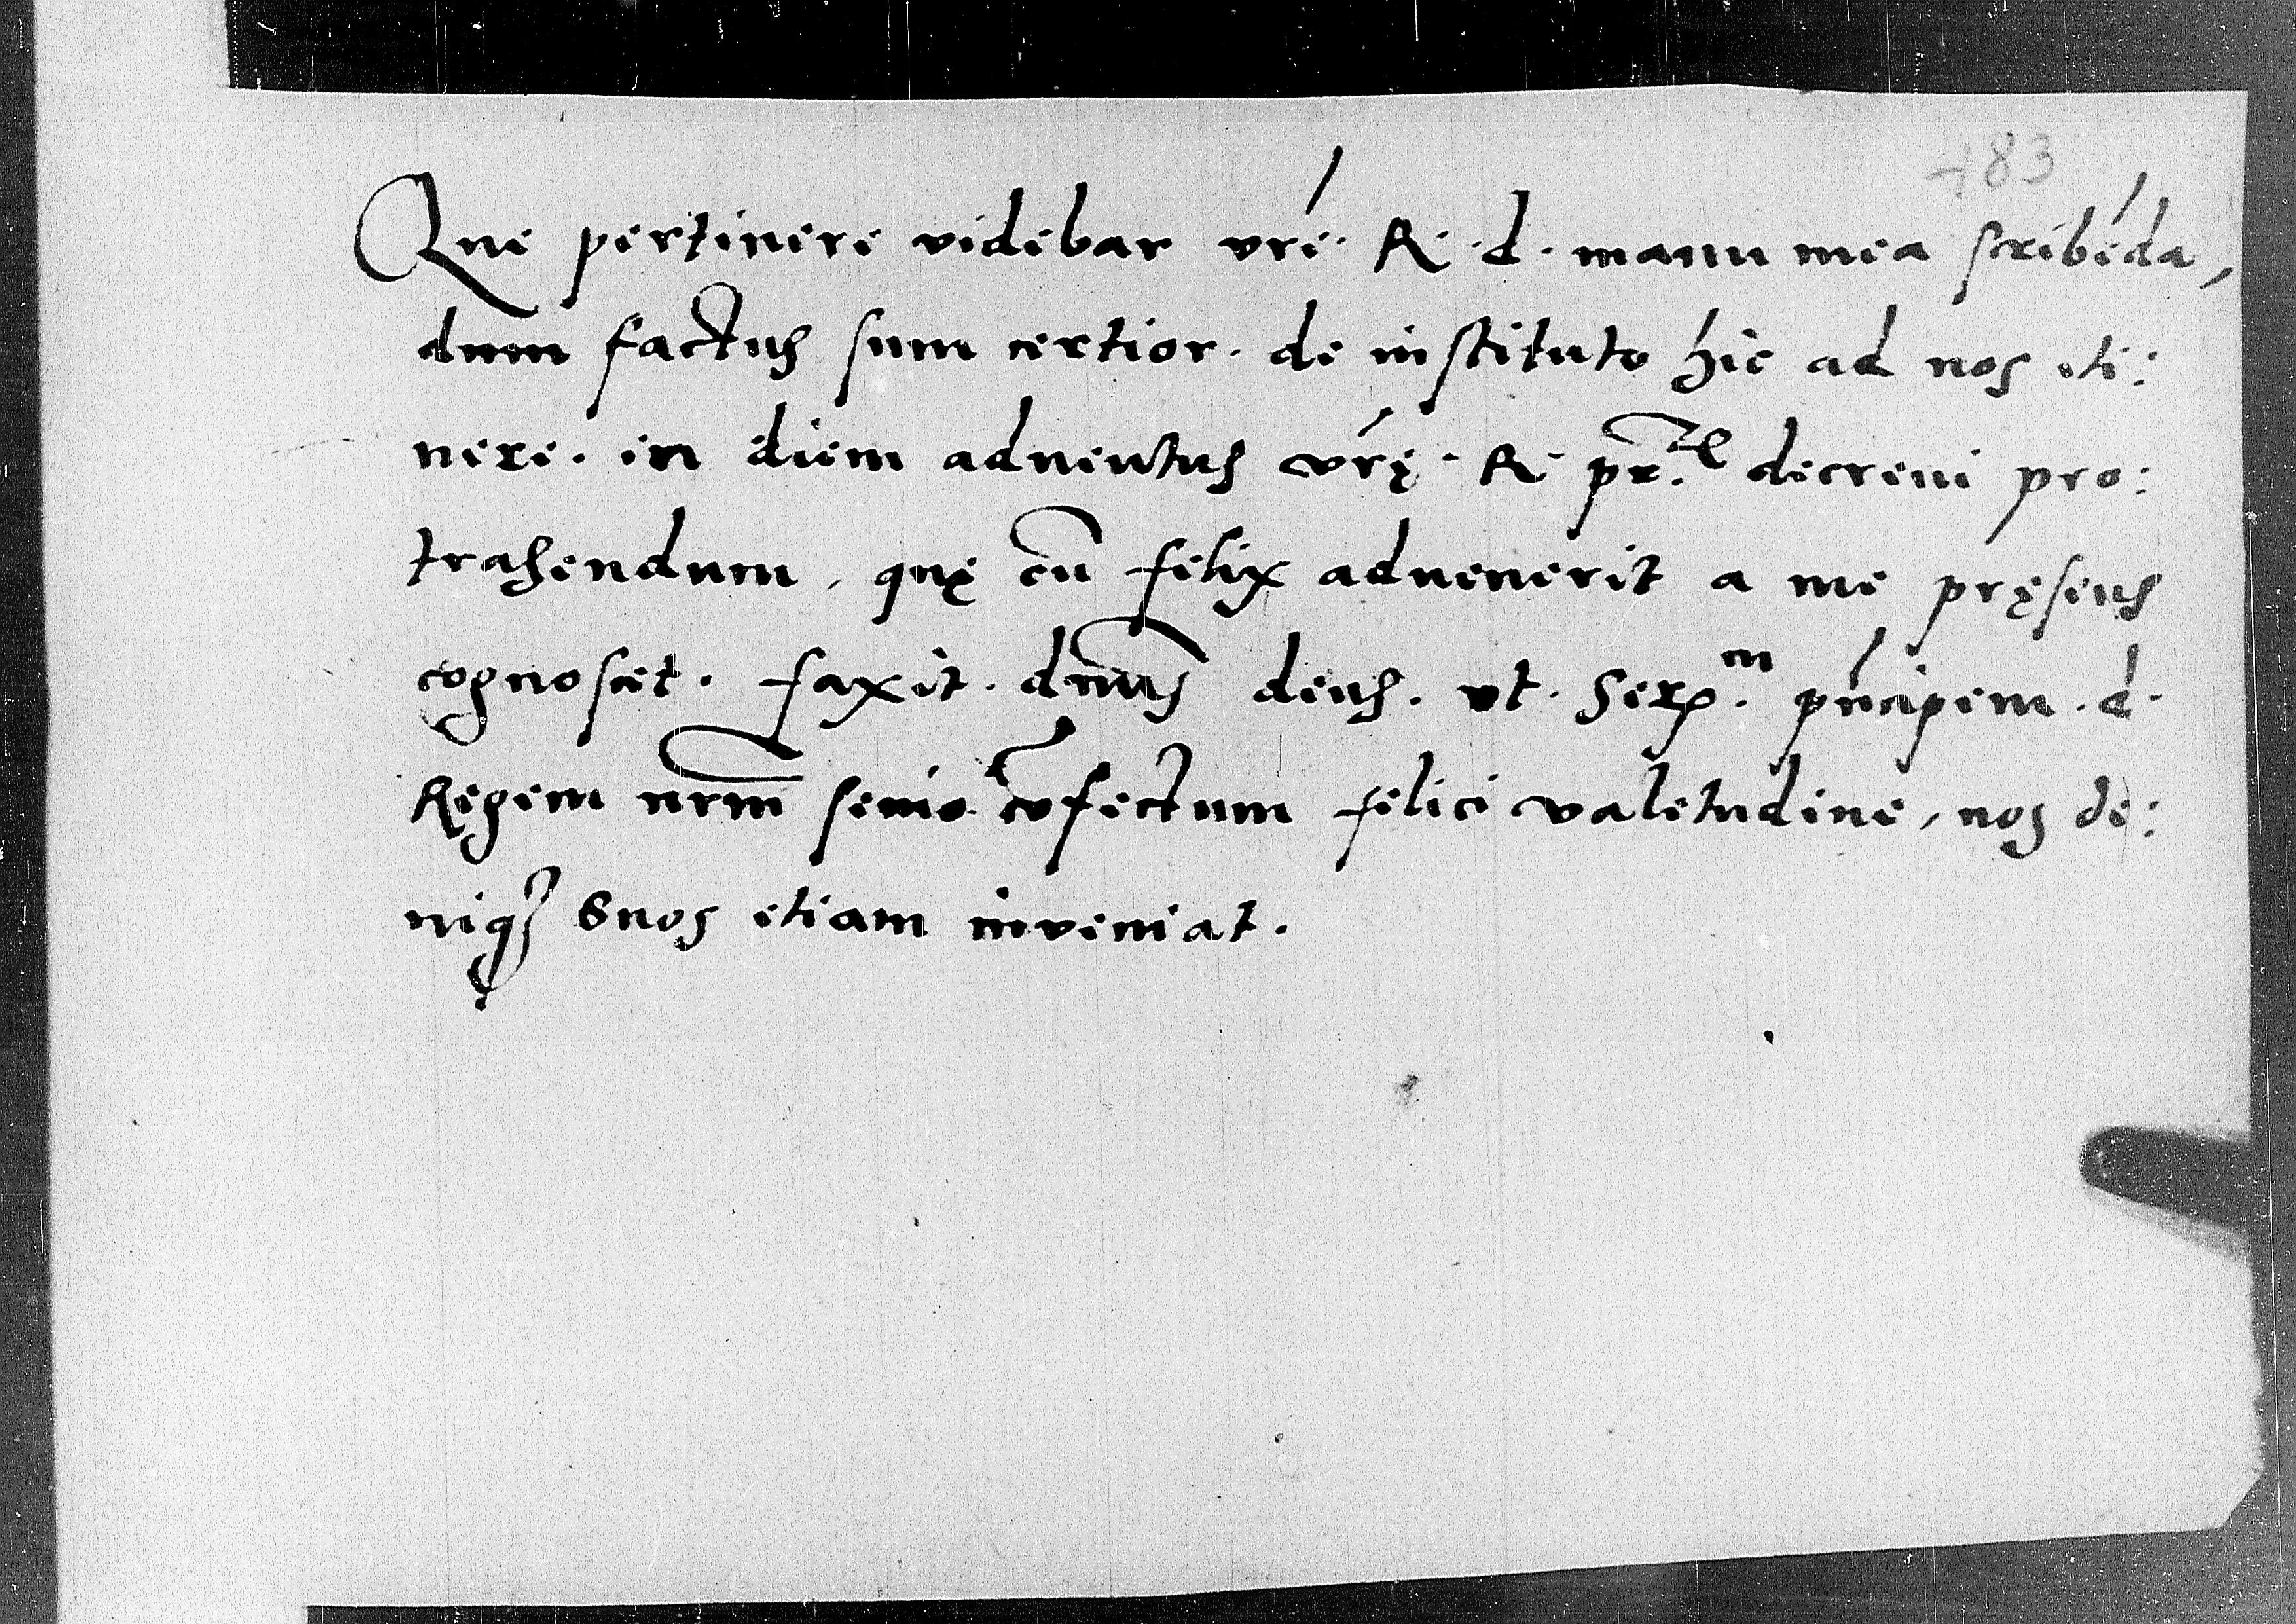 483
Que pertinere videbar vré. R. d. manu mea scribéda,
dum factus sum certior. de instituto hic ad nos eti:
nere. in diem aduentus vrę. R pr.te decreui pro:
trahendum, quę cū felix aduenerit a me pręsens
cognoscet. faxit. dnus deus. vt. Ser.m pncipem. d.
Regem nrm senio cōfectum felici valetudine, nos de:
niqꝫ suos etiam inveniat.